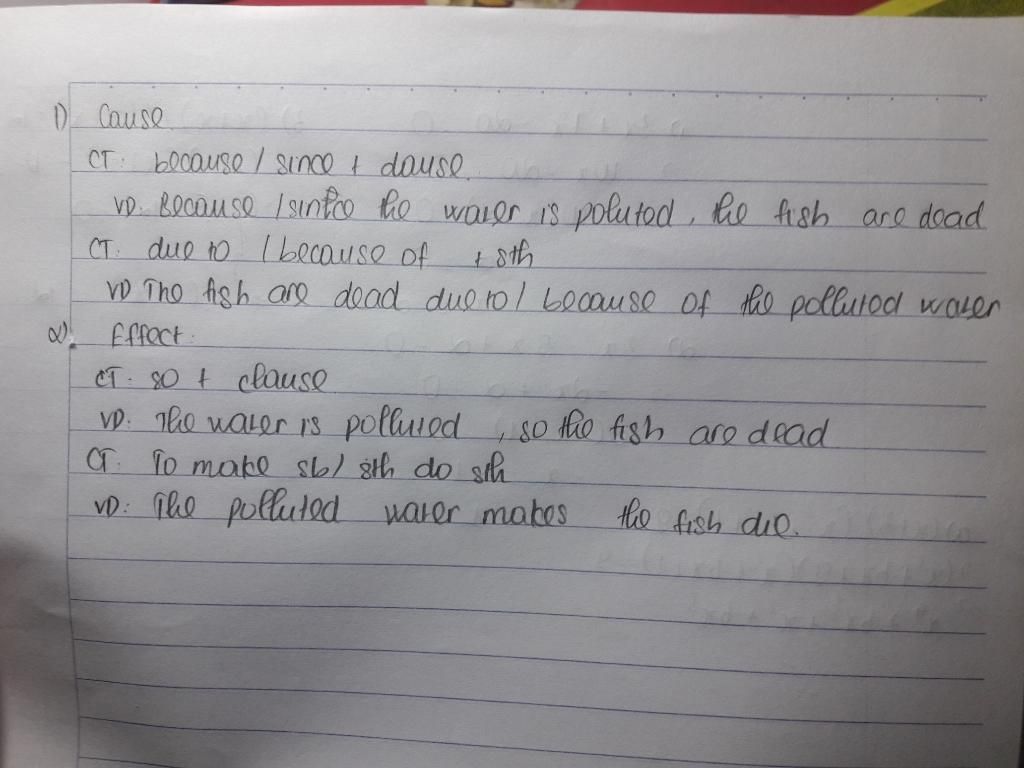 1) Cause
CT: because / since + clause.
VD: Because / since the water is poluted, the fish are dead
CT: due to / because of + sth
VD The fish are dead due to / because of the polluted water
2). Effect:
CT: so + clause
VD: The water is polluted, so the fish are dead
CT: To make sb/ sth do sth
VD: The polluted water makes the fish die.